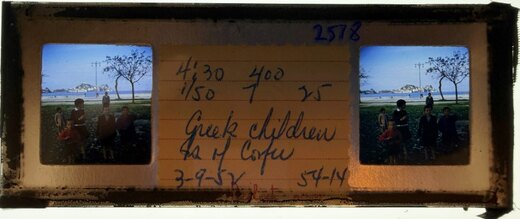 2518
4:30 400
1/50 7 25
Greek children
Is of Corfu
3-9-52 54-14